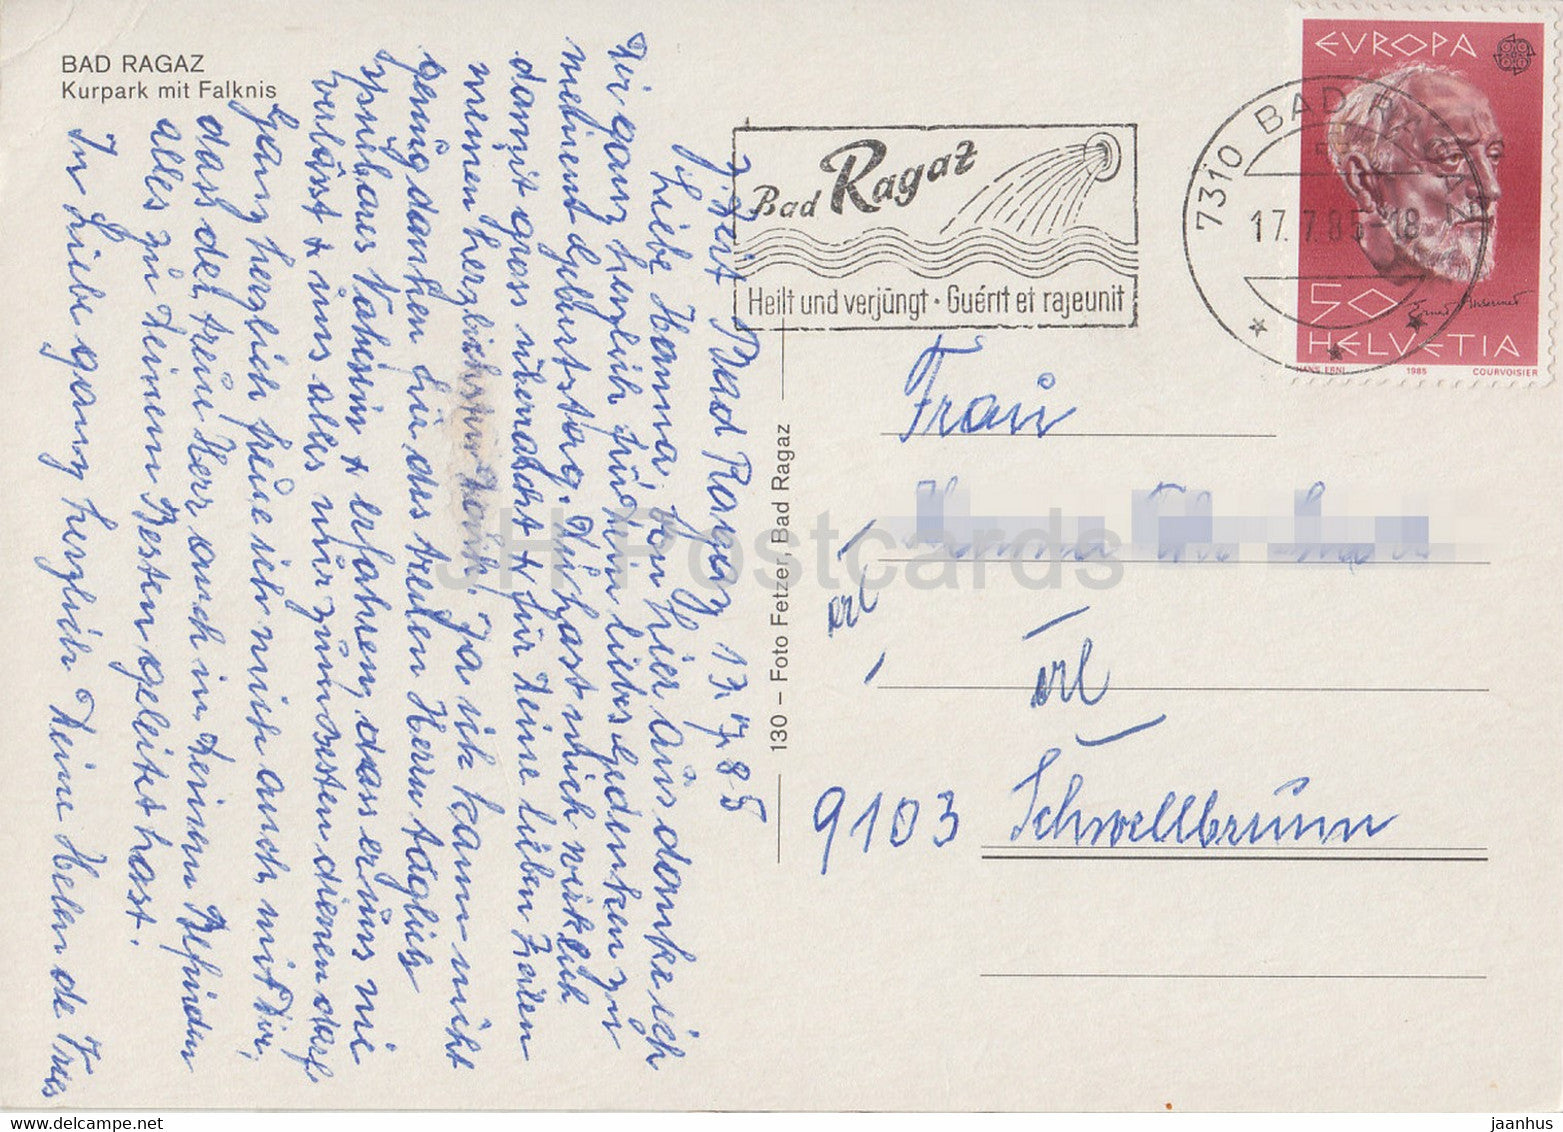 BAD RAGAZ
Kurpark mit Falknis
z. Zeit Bad Ragaz 17.7.85
Liebe Hanna, von hier aus danke ich
Dir ganz herzlich für Dein liebes Gedenken zu
meinem Geburtstag. Du hast mich wirklich
damit gross überrascht & für Deine lieben Zeilen
meinen herzlichsten Dank. Ja ich kann nicht
genug danken für des treuen Herrn täglich
spürbares Nahesein & erfahren, dass er uns nie
verlässt & uns alles nur zum besten dienen darf.
Ganz herzlich freue ich mich auch mit Dir,
dass der treue Herr auch in Deinem Befinden
alles zu Deinem Besten geleitet hast.
In Liebe ganz herzlich Deine Helen de Vries
130 – Foto Fetzer, Bad Ragaz
Bad Ragaz
Heilt und verjüngt · Guérit et rajeunit
7310 BAD RAGAZ
17.7.85-18
EVROPA
50
HELVETIA
HANS ERNI 1985 COURVOISIER
Frau
9103 Schwellbrunn
JH Postcards
www.delcampe.net
jaanhus